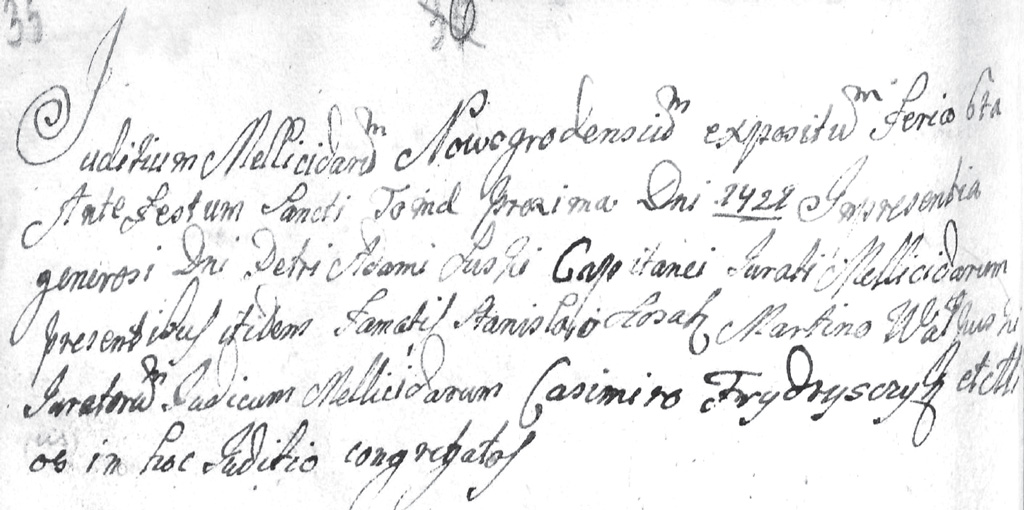 35
Juditium Mellicidarum Nowogrodensium expositum Feria 6ta
Ante Festum Sancti Toma Proxima Dni
generosi Dni Petri Adami Luski Capitanei Jurati Mellicidarum
presentibus itidem Famatis Stanislao Kosak Martino Walkuski
Juratorum Judicum Mellicidarum Casimiro Frydrysczyk et alli
os in hoc Juditio congregatos